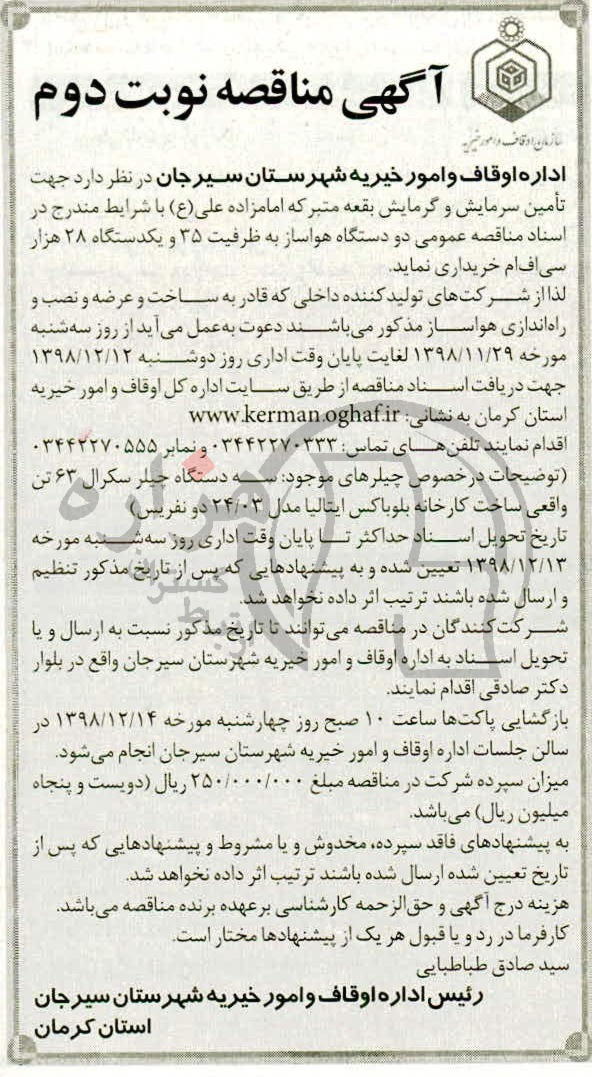 سازمان اوقاف و امور خیریه
آگهی مناقصه نوبت دوم
اداره اوقاف و امور خیریه شهرستان سیرجان در نظر دارد جهت
تأمین سرمایش و گرمایش بقعه متبرکه امامزاده علی(ع) با شرایط مندرج در
اسناد مناقصه عمومی دو دستگاه هواساز به ظرفیت ۳۵ و یکدستگاه ۲۸ هزار
سی‌اف‌ام خریداری نماید.
لذا از شرکت‌های تولیدکننده داخلی که قادر به ساخت و عرضه و نصب و
راه‌اندازی هواساز مذکور می‌باشند دعوت به‌عمل می‌آید از روز سه‌شنبه
مورخه ۱۳۹۸/۱۱/۲۹ لغایت پایان وقت اداری روز دوشنبه ۱۳۹۸/۱۲/۱۲
جهت دریافت اسناد مناقصه از طریق سایت اداره کل اوقاف و امور خیریه
استان کرمان به نشانی: www.kerman.oghaf.ir
اقدام نمایند تلفن‌های تماس: ۰۳۴۴۲۲۷۰۳۳۳ و نمابر ۰۳۴۴۲۲۷۰۵۵۵
(توضیحات درخصوص چیلرهای موجود: سه دستگاه چیلر سکرال ۶۳ تن
واقعی ساخت کارخانه بلوباکس ایتالیا مدل ۲۴/۰۳ دو نفریس)
تاریخ تحویل اسناد حداکثر تا پایان وقت اداری روز سه‌شنبه مورخه
۱۳۹۸/۱۲/۱۳ تعیین شده و به پیشنهادهایی که پس از تاریخ مذکور تنظیم
و ارسال شده باشند ترتیب اثر داده نخواهد شد.
شرکت‌کنندگان در مناقصه می‌توانند تا تاریخ مذکور نسبت به ارسال و یا
تحویل اسناد به اداره اوقاف و امور خیریه شهرستان سیرجان واقع در بلوار
دکتر صادقی اقدام نمایند.
بازگشایی پاکت‌ها ساعت ۱۰ صبح روز چهارشنبه مورخه ۱۳۹۸/۱۲/۱۴ در
سالن جلسات اداره اوقاف و امور خیریه شهرستان سیرجان انجام می‌شود.
میزان سپرده شرکت در مناقصه مبلغ ۲۵۰/۰۰۰/۰۰۰ ریال (دویست و پنجاه
میلیون ریال) می‌باشد.
به پیشنهادهای فاقد سپرده، مخدوش و یا مشروط و پیشنهادهایی که پس از
تاریخ تعیین شده ارسال شده باشند ترتیب اثر داده نخواهد شد.
هزینه درج آگهی و حق‌الزحمه کارشناسی برعهده برنده مناقصه می‌باشد.
کارفرما در رد و یا قبول هر یک از پیشنهادها مختار است.
سید صادق طباطبایی
رئیس اداره اوقاف و امور خیریه شهرستان سیرجان
استان کرمان